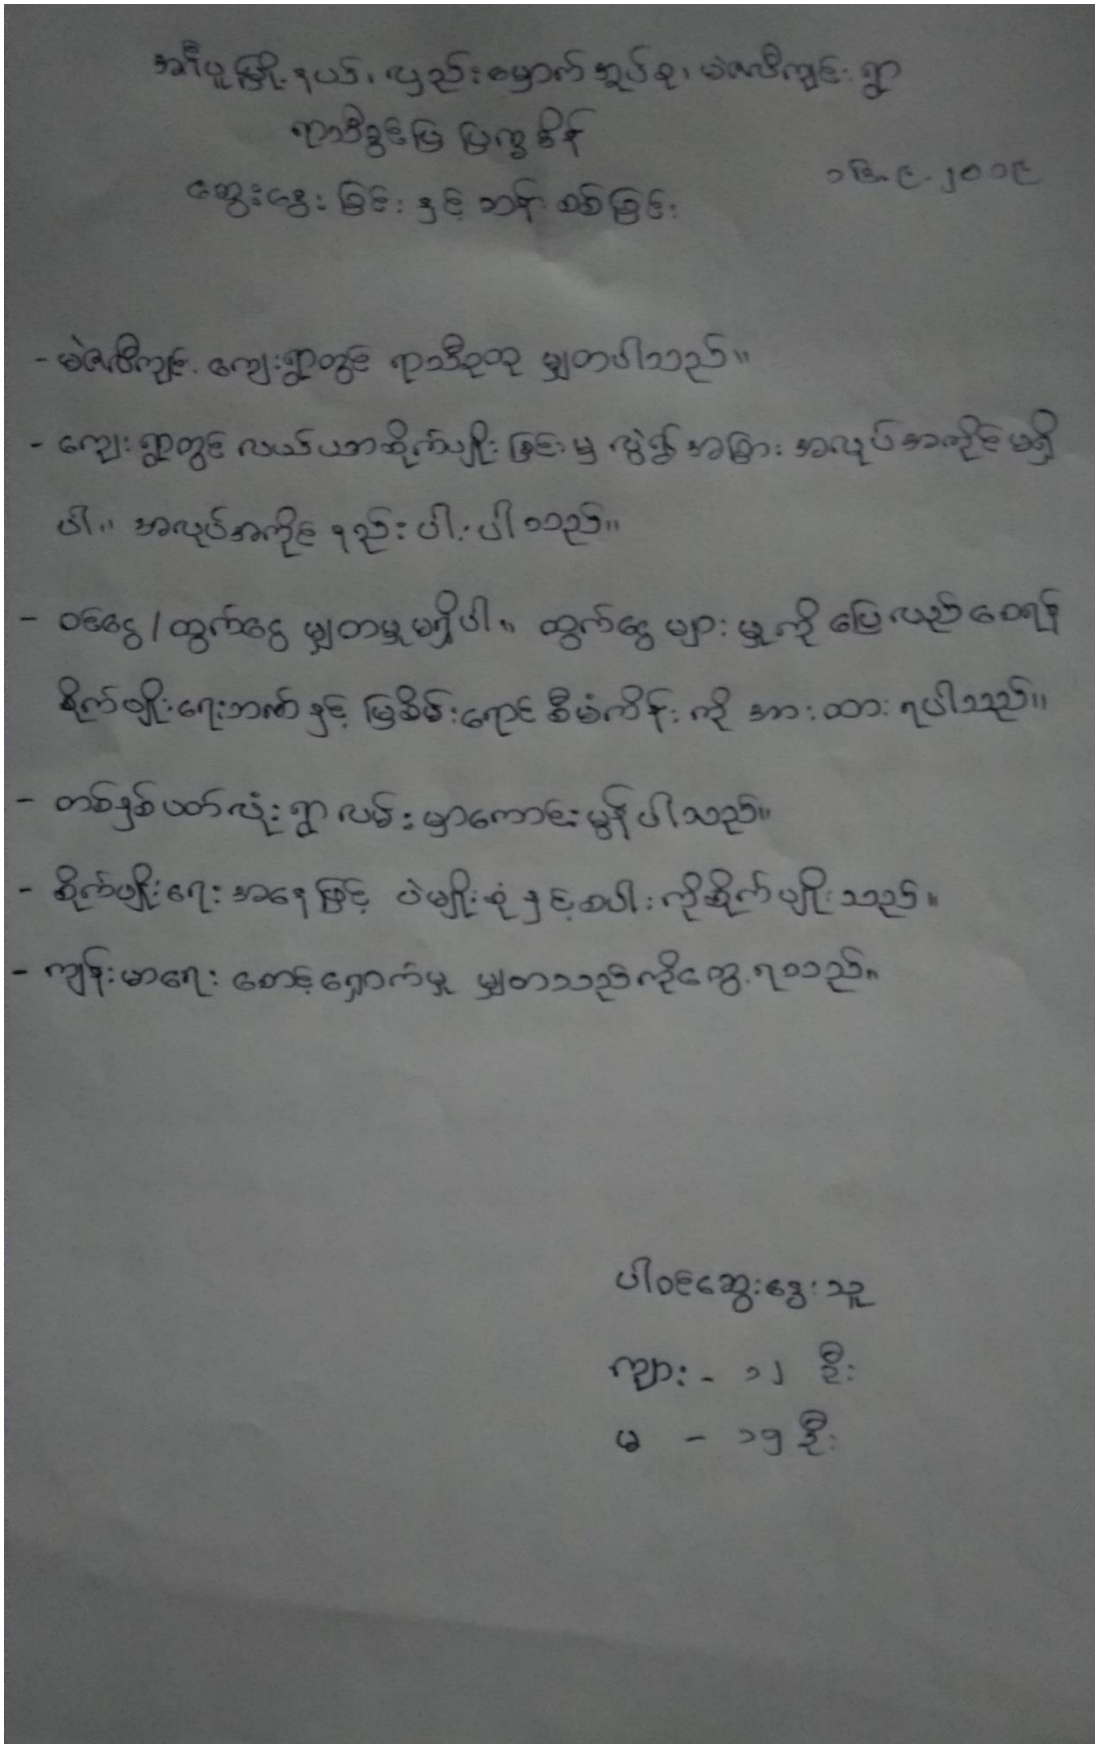 အင်္ဂပူမြို့နယ်၊ လှည်းမှောက်အုပ်စု၊ မဲဇလီကျွင်းရွာ
ရာသီခွင်ပြ ပြက္ခဒိန်
ဆွေးနွေးခြင်း နှင့် ဆန်းစစ်ခြင်း
၁၆.၉.၂၀၁၉
- မဲဇလီကျင်းကျေးရွာတွင် ရာသီဥတု မျှတပါသည်။
- ကျေးရွာတွင် လယ်ယာစိုက်ပျိုးခြင်းမှ လွဲ၍ အခြားအလုပ်အကိုင်မရှိ
ပါ။ အလုပ်အကိုင် နည်းပါးပါသည်။
- ဝင်ငွေ/ထွက်ငွေ မျှတမှုမရှိပါ။ ထွက်ငွေများမှုကို ပြေလည်စေရန်
စိုက်ပျိုးရေးဘဏ်နှင့် မြစိမ်းရောင်စီမံကိန်းကို အားထားရပါသည်။
- တစ်နှစ်ပတ်လုံး ရွာလမ်းမှာကောင်းမွန်ပါသည်။
- စိုက်ပျိုးရေးအနေဖြင့် ပဲမျိုးစုံနှင့်စပါးကိုစိုက်ပျိုးသည်။
- ကျန်းမာရေး စောင့်ရှောက်မှု မျှတသည်ကိုတွေ့ရသည်။
ပါဝင်ဆွေးနွေးသူ
ကျား - ၁၂ ဦး
မ - ၁၅ ဦး